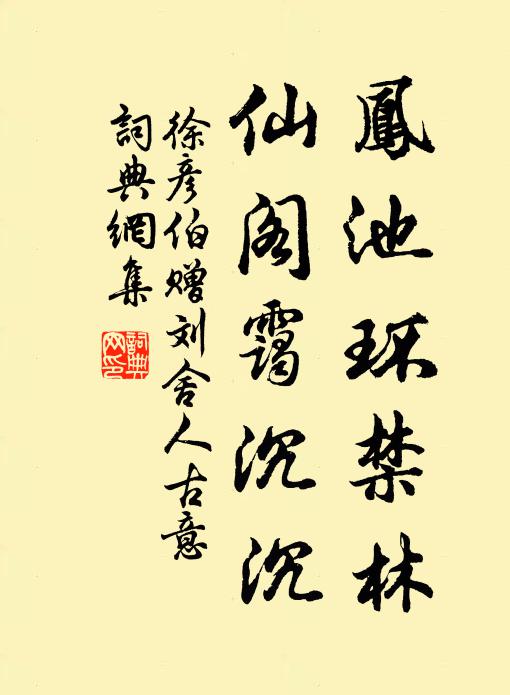 鳳池环禁林
仙阁霭沉沉
徐彦伯赠刘舍人古意
詞典網集
詞典网印